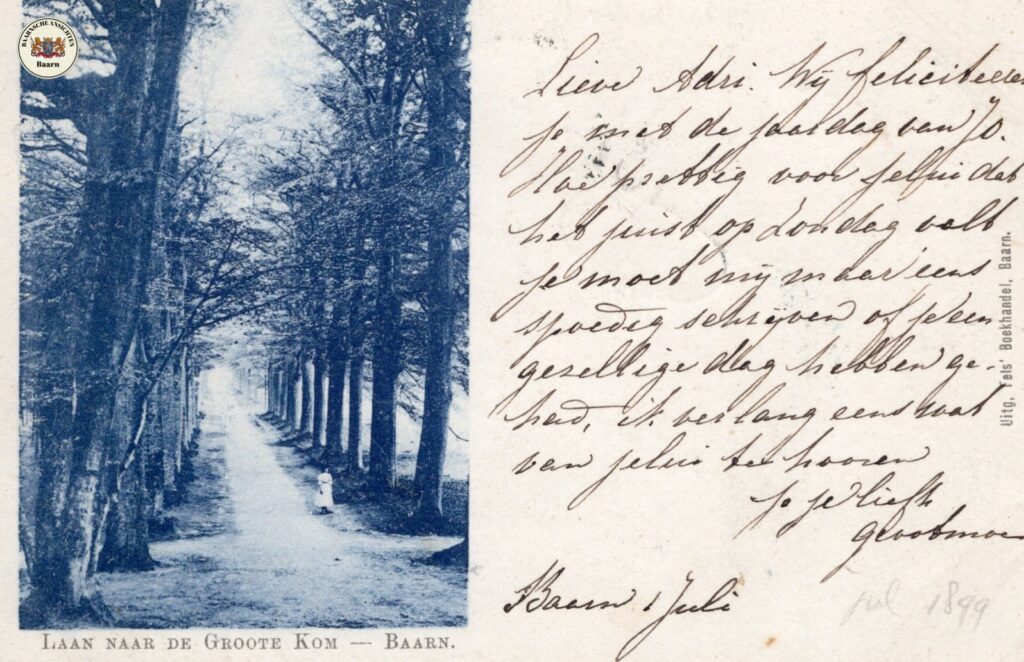 BAARNSCHE ANSICHTEN
Baarn
Lieve Adri. Wij feliciteeren
je met de jaardag van Jo.
Hoe prettig voor jelui dat
het juist op Zondag valt
je moet mij maar eens
spoedig schrijven of je een
gezellige dag hebben ge-
had, ik verlang eens wat
van jelui te hooren
je liefh
Grootmoe
Baarn 1 Juli
jul 1899
Uitg. Fels' Boekhandel, Baarn.
LAAN NAAR DE GROOTE KOM — BAARN.